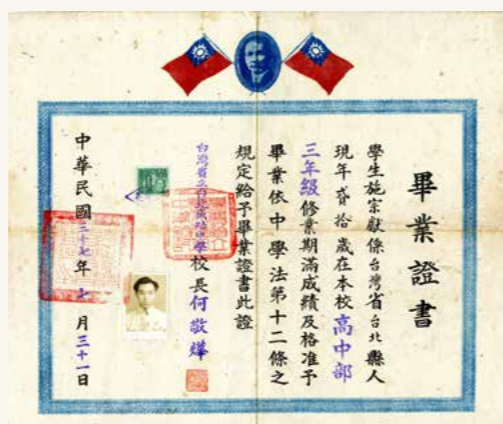 畢業證書
學生施宗獻係台灣省台北縣人
現年貳拾歲在本校高中部
三年級修業期滿成績及格准予
畢業依中學法第十二條之
規定給予畢業證書此證
校長何敬燁
中華民國三十七年七月三十一日